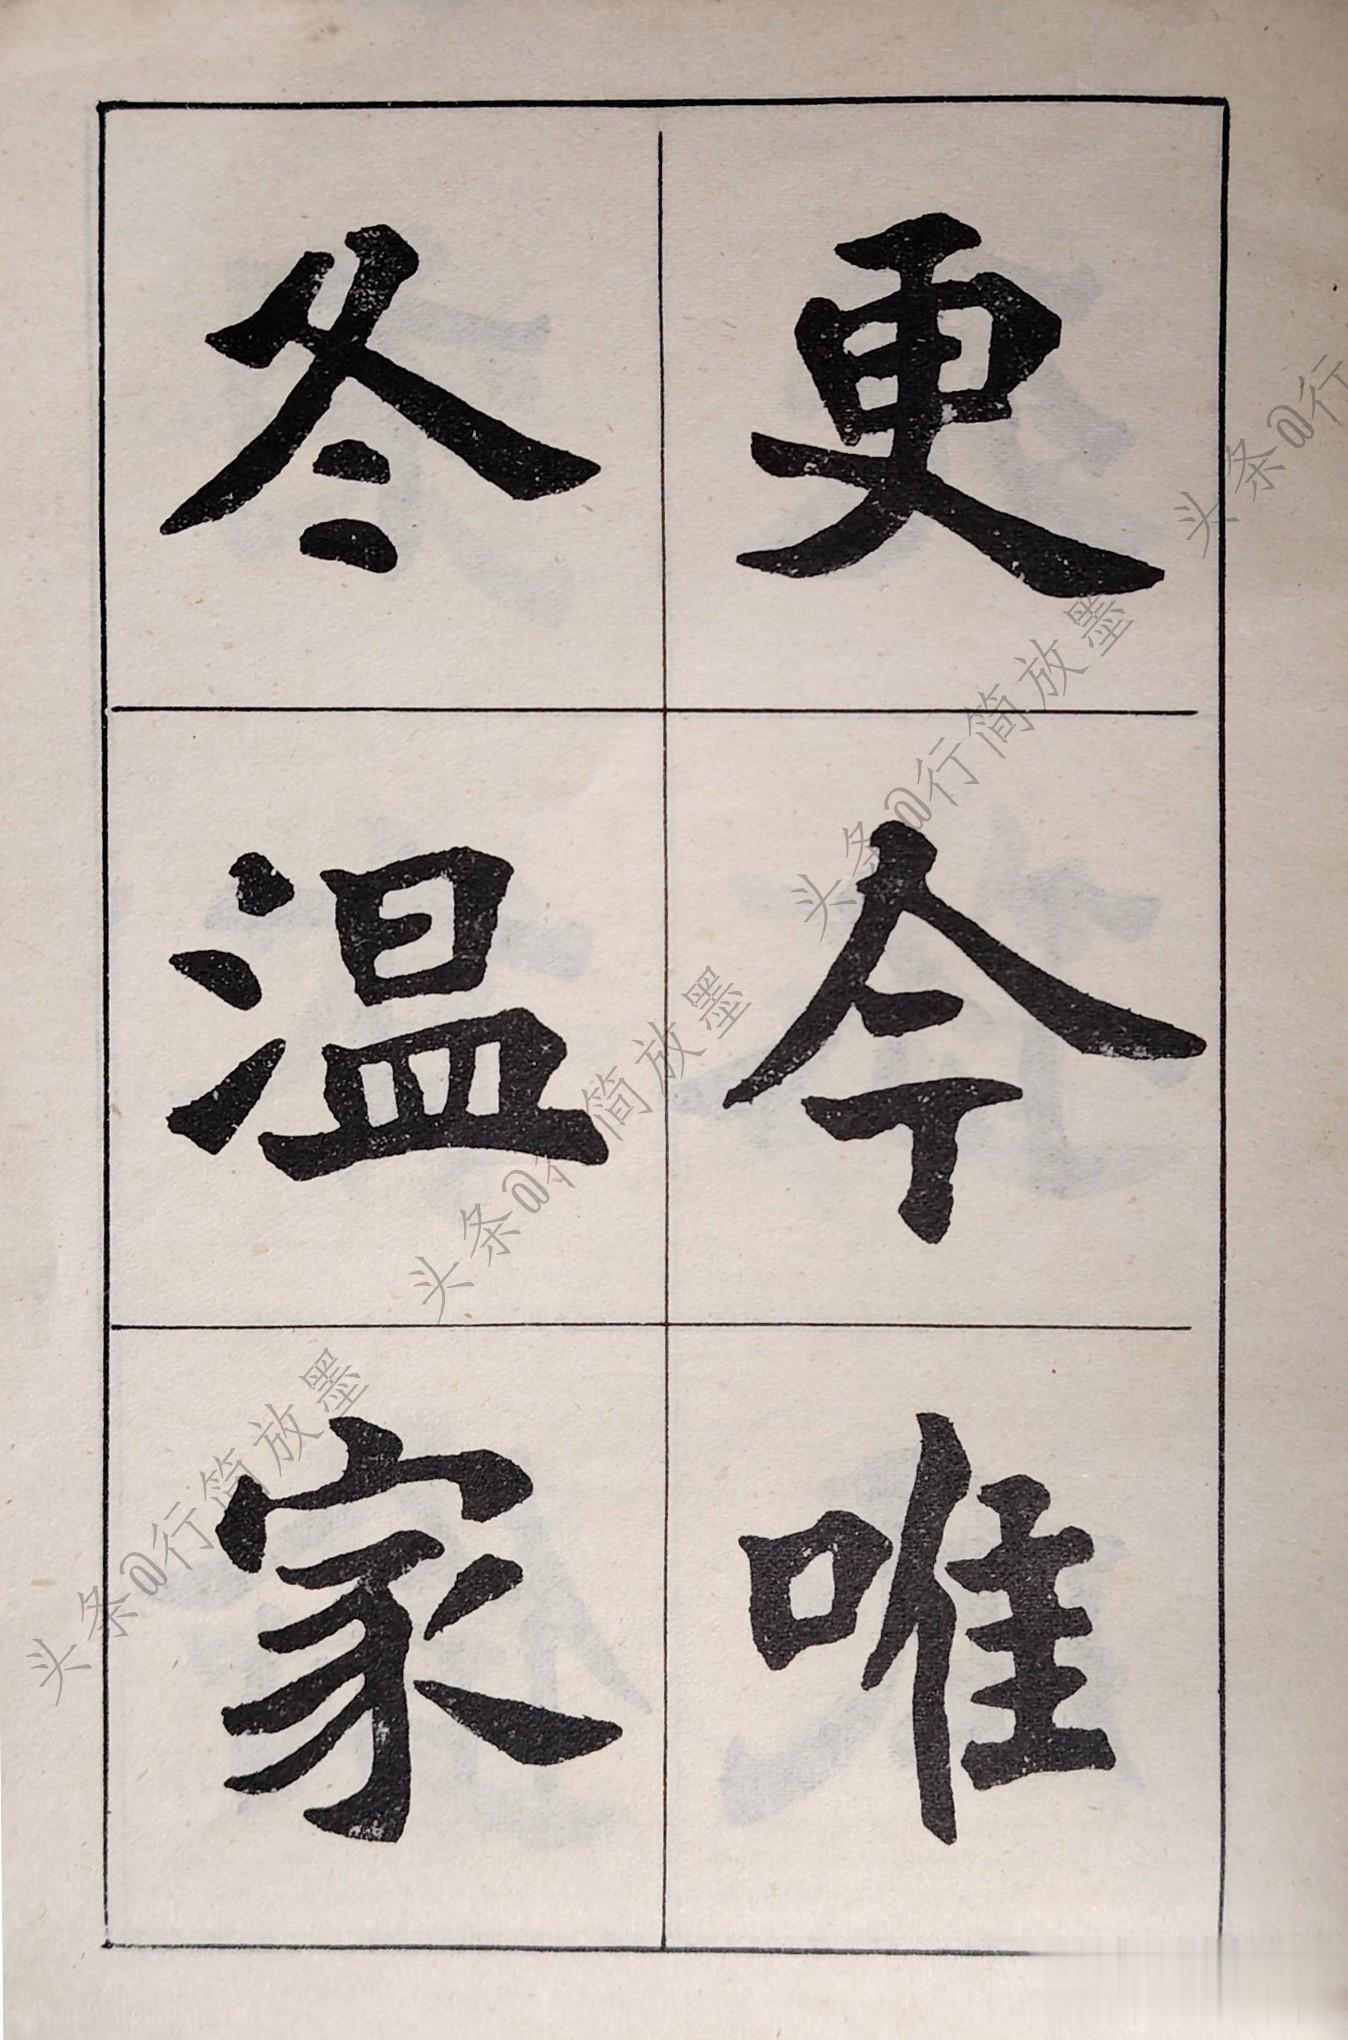 更今唯
冬温家
头条@行简放墨
头条@行简放墨
头条@行简放墨
头条@行